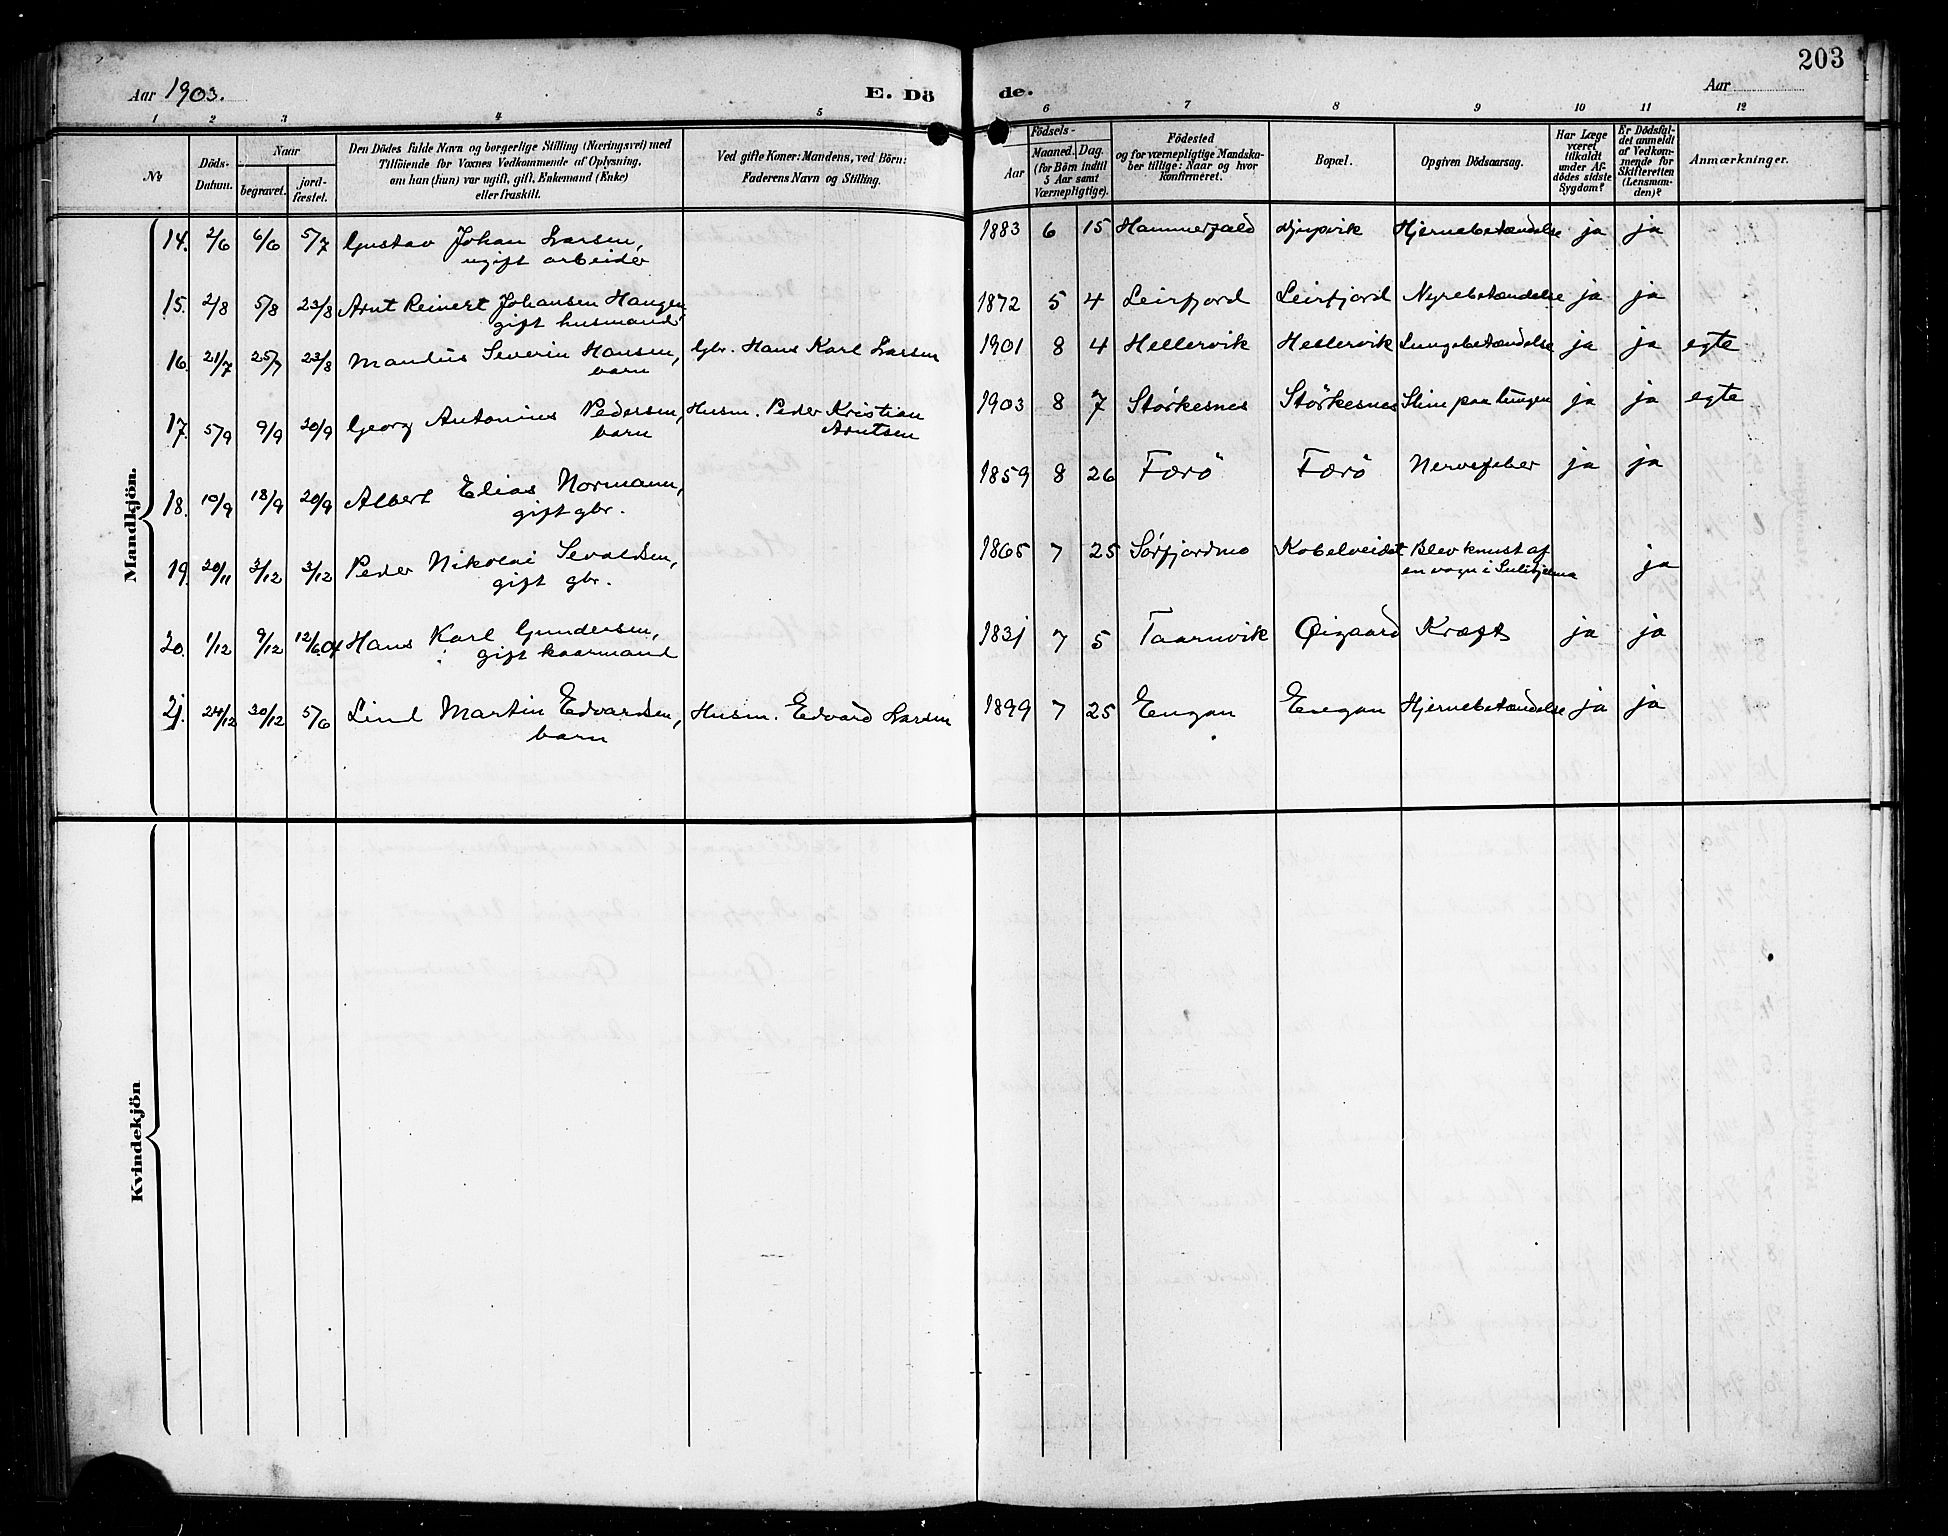 203
Aar 1903.
E. Dö
de.
Aar
1 2 3 4 5
6 7 8 9 10 11 12
No
Döds-
Datum.
Naar
begravet.
jord-
fæstet.
Den Dödes fulde Navn og borgerlige Stilling (Næringsvei) med
Tilföiende for Voxnes Vedkommende af Oplysning,
om han (hun) var ugift, gift, Enkemand (Enke)
eller fraskilt.
Ved gifte Koner: Mandens, ved Börn:
Faderens Navn og Stilling.
Födsels-
Aar
Maaned. Dag.
(for Börn indtil
5 Aar samt
Værnepligtige).
Födested
og for værnepligtige Mandska-
ber tillige: Naar og hvor
konfirmeret.
Bopæl.
Opgiven Dödsaarsag.
Har Læge
været
tilkaldt
under Af-
dödes sidste
Sygdom?
Er Dödsfal-
det anmeldt
af Vedkom-
mende for
Skifteretten
(Lensman-
den)?
Anmærkninger.
Mandkjön.
14. 2/6 6/6 5/7 Gustav Johan Larsen, 1883 6 15 Hammerfald Djupvik Hjernebetændelse ja ja
ugift arbeider
15. 2/8 5/8 23/8 Arnt Reinert Johansen Haugen 1872 5 4 Leirfjord Leirfjord Nyrebetændelse ja ja
gift husmand
16. 21/7 25/7 23/8 Mandius Severin Hansen, Gbr. Hans Karl Larsen 1901 8 4 Hellervik Hellervik Lungebetændelse ja ja egte
barn
17. 5/9 9/9 20/9 Georg Antonius Pedersen, Husm. Peder Kristian 1903 8 7 Störkesnes Störkesnes Slim paa lungen ja ja egte
barn Arntsen
18. 10/9 18/9 20/9 Albert Elias Normann, 1859 8 26 Færö Færö Nervefeber ja ja
gift gbr.
19. 20/11 3/12 3/12 Peder Nikolai Sevaldsen, 1865 7 25 Sörfjordmo Kobelveidet Blev knust af
gift gbr. en vogn i Sulitjelma ja
20. 1/12 9/12 12/6.04 Hans Karl Gundersen, 1831 7 5 Taarnvik Øigaard Kræft ja ja
gift kaarmand
21. 24/12 30/12 5/6 Lind Martin Edvardsen, Husm. Edvard Larsen 1899 7 25 Engan Engan Hjernebetændelse ja ja
barn
Kvindekjön